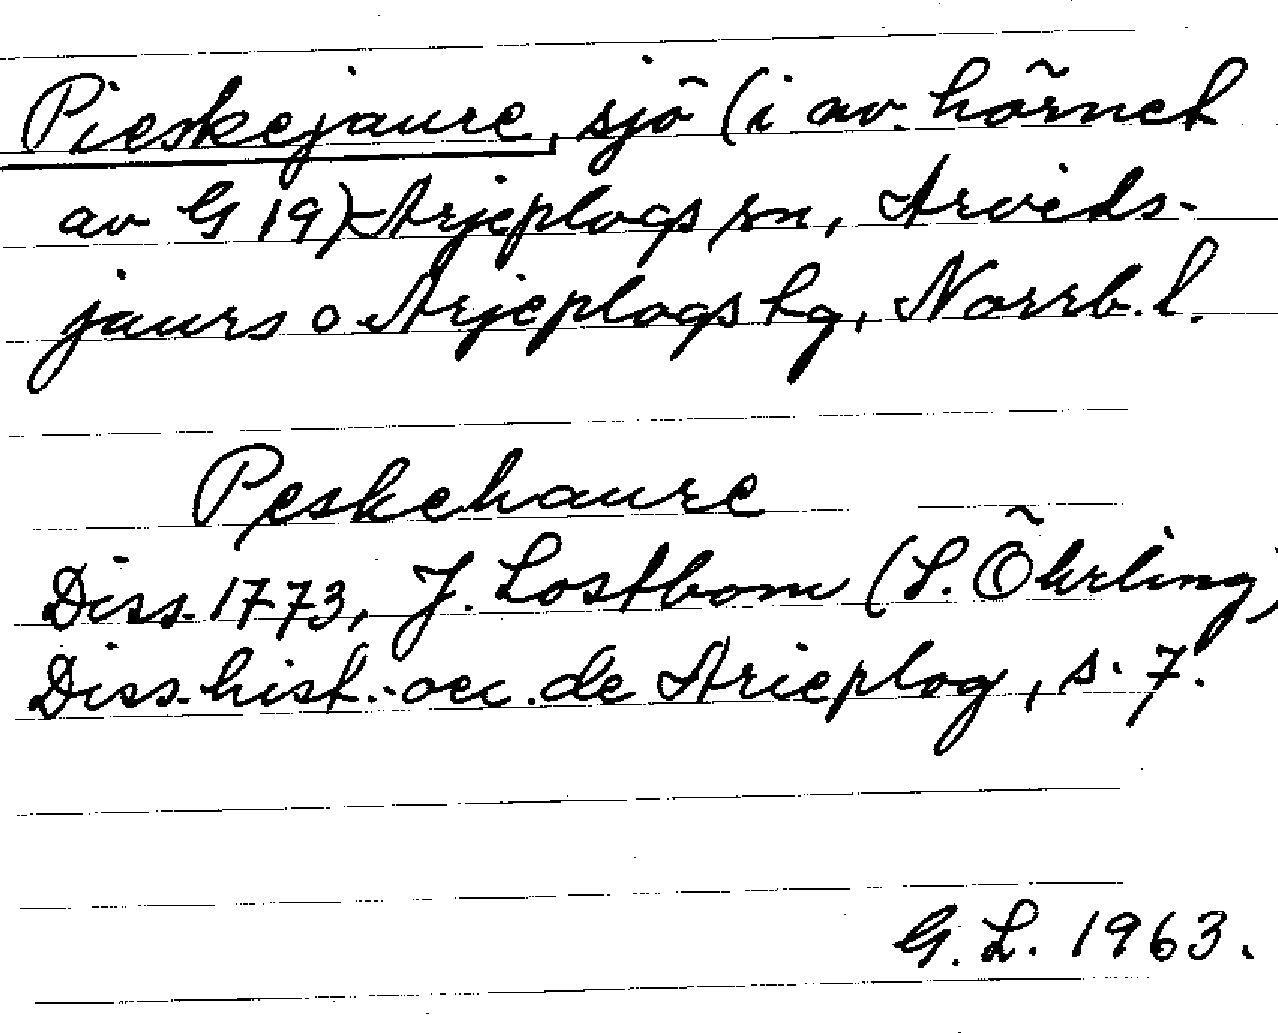 Pieskejaure, sjö (i nv. hörnet
av G 19) Arjeplogs sn, Arvids-
jaurs o Arjeplogs tg, Norrb. l.
Peskehaure
Diss. 1773, J. Lostbom (L. Öhrling)
Diss. hist.-oec. de Arieplog, s. 7.
G. L. 1963.